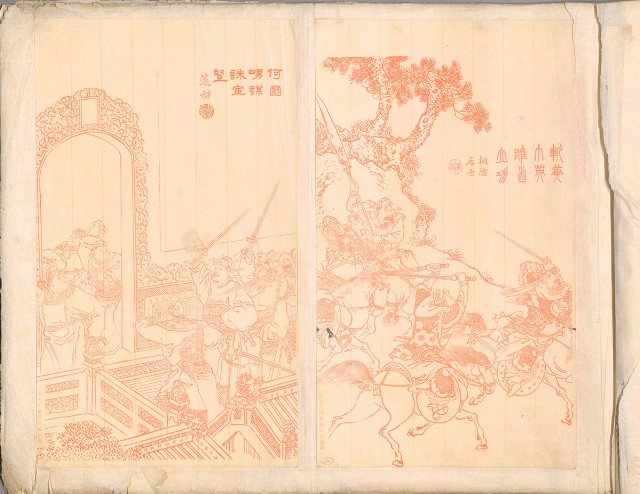 斬黃
巾英
雄首
立功
何國
舅謀
誅宦
豎